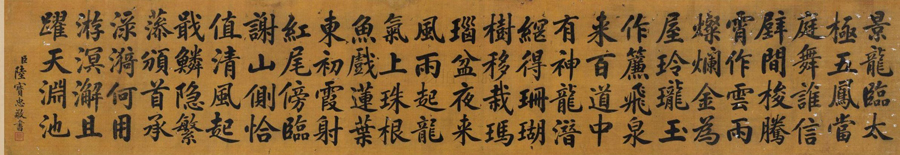 景龍臨太
極五鳳當
庭舞誰信
壁間梭騰
霄作雲雨
燦爛金為
屋玲瓏玉
作簾飛泉
来百道中
有神龍潛
網得珊瑚
樹移栽瑪
瑙盆夜来
風雨起龍
氣上珠根
魚戲蓮葉
東初霞射
紅尾傍臨
謝山側恰
值清風起
戢鱗隐繁
藻頒首承
渌漪何用
游溟澥且
躍天淵池
臣陸寳忠敬書